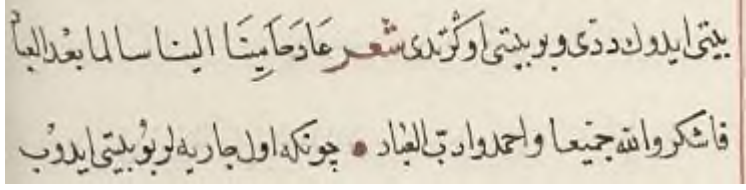 بيتى ايدوك ددى و بو بيتى اوكرتدى شعر عَادَ حَامِينَا الينا سالما بعْد البعاد
فاشكروا لله جميعا واحمدوا ربّ العباد • چونكه اول جاريه لر بو بيتى ايدوب